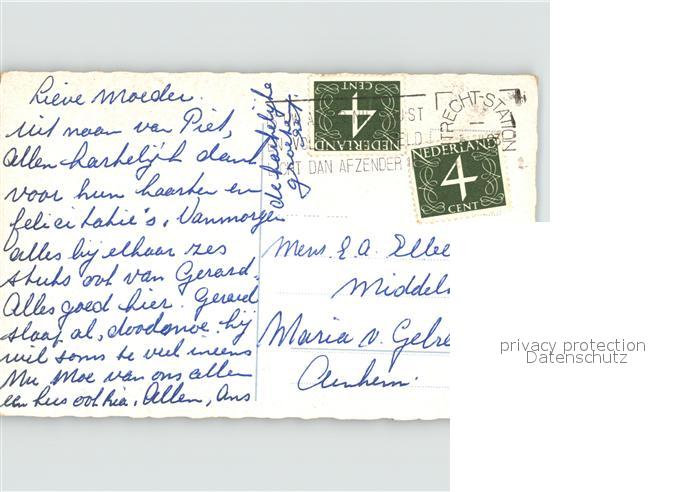 Lieve Moeder.
Uit naam van Piet,
allen hartelijk dank
voor hun kaarten en
felicitatie's. Vanmorgen
alles bij elkaar zes
stuks ook van Gerard.
Alles goed hier. Gerard
slaap al, doodmoe. hij
wil soms te veel ineens
Nu, Moe van ons allen
een kus ook Ria. Allen, Ans
de hartelijke
groeten
NEDERLAND
4
CENT
NEDERLAND
4
CENT
UTRECHT-STATION
DAN AFZENDER
Mevr. E. A. Elle
Middels
Maria v. Gelre
Arnhem.
privacy protection
Datenschutz